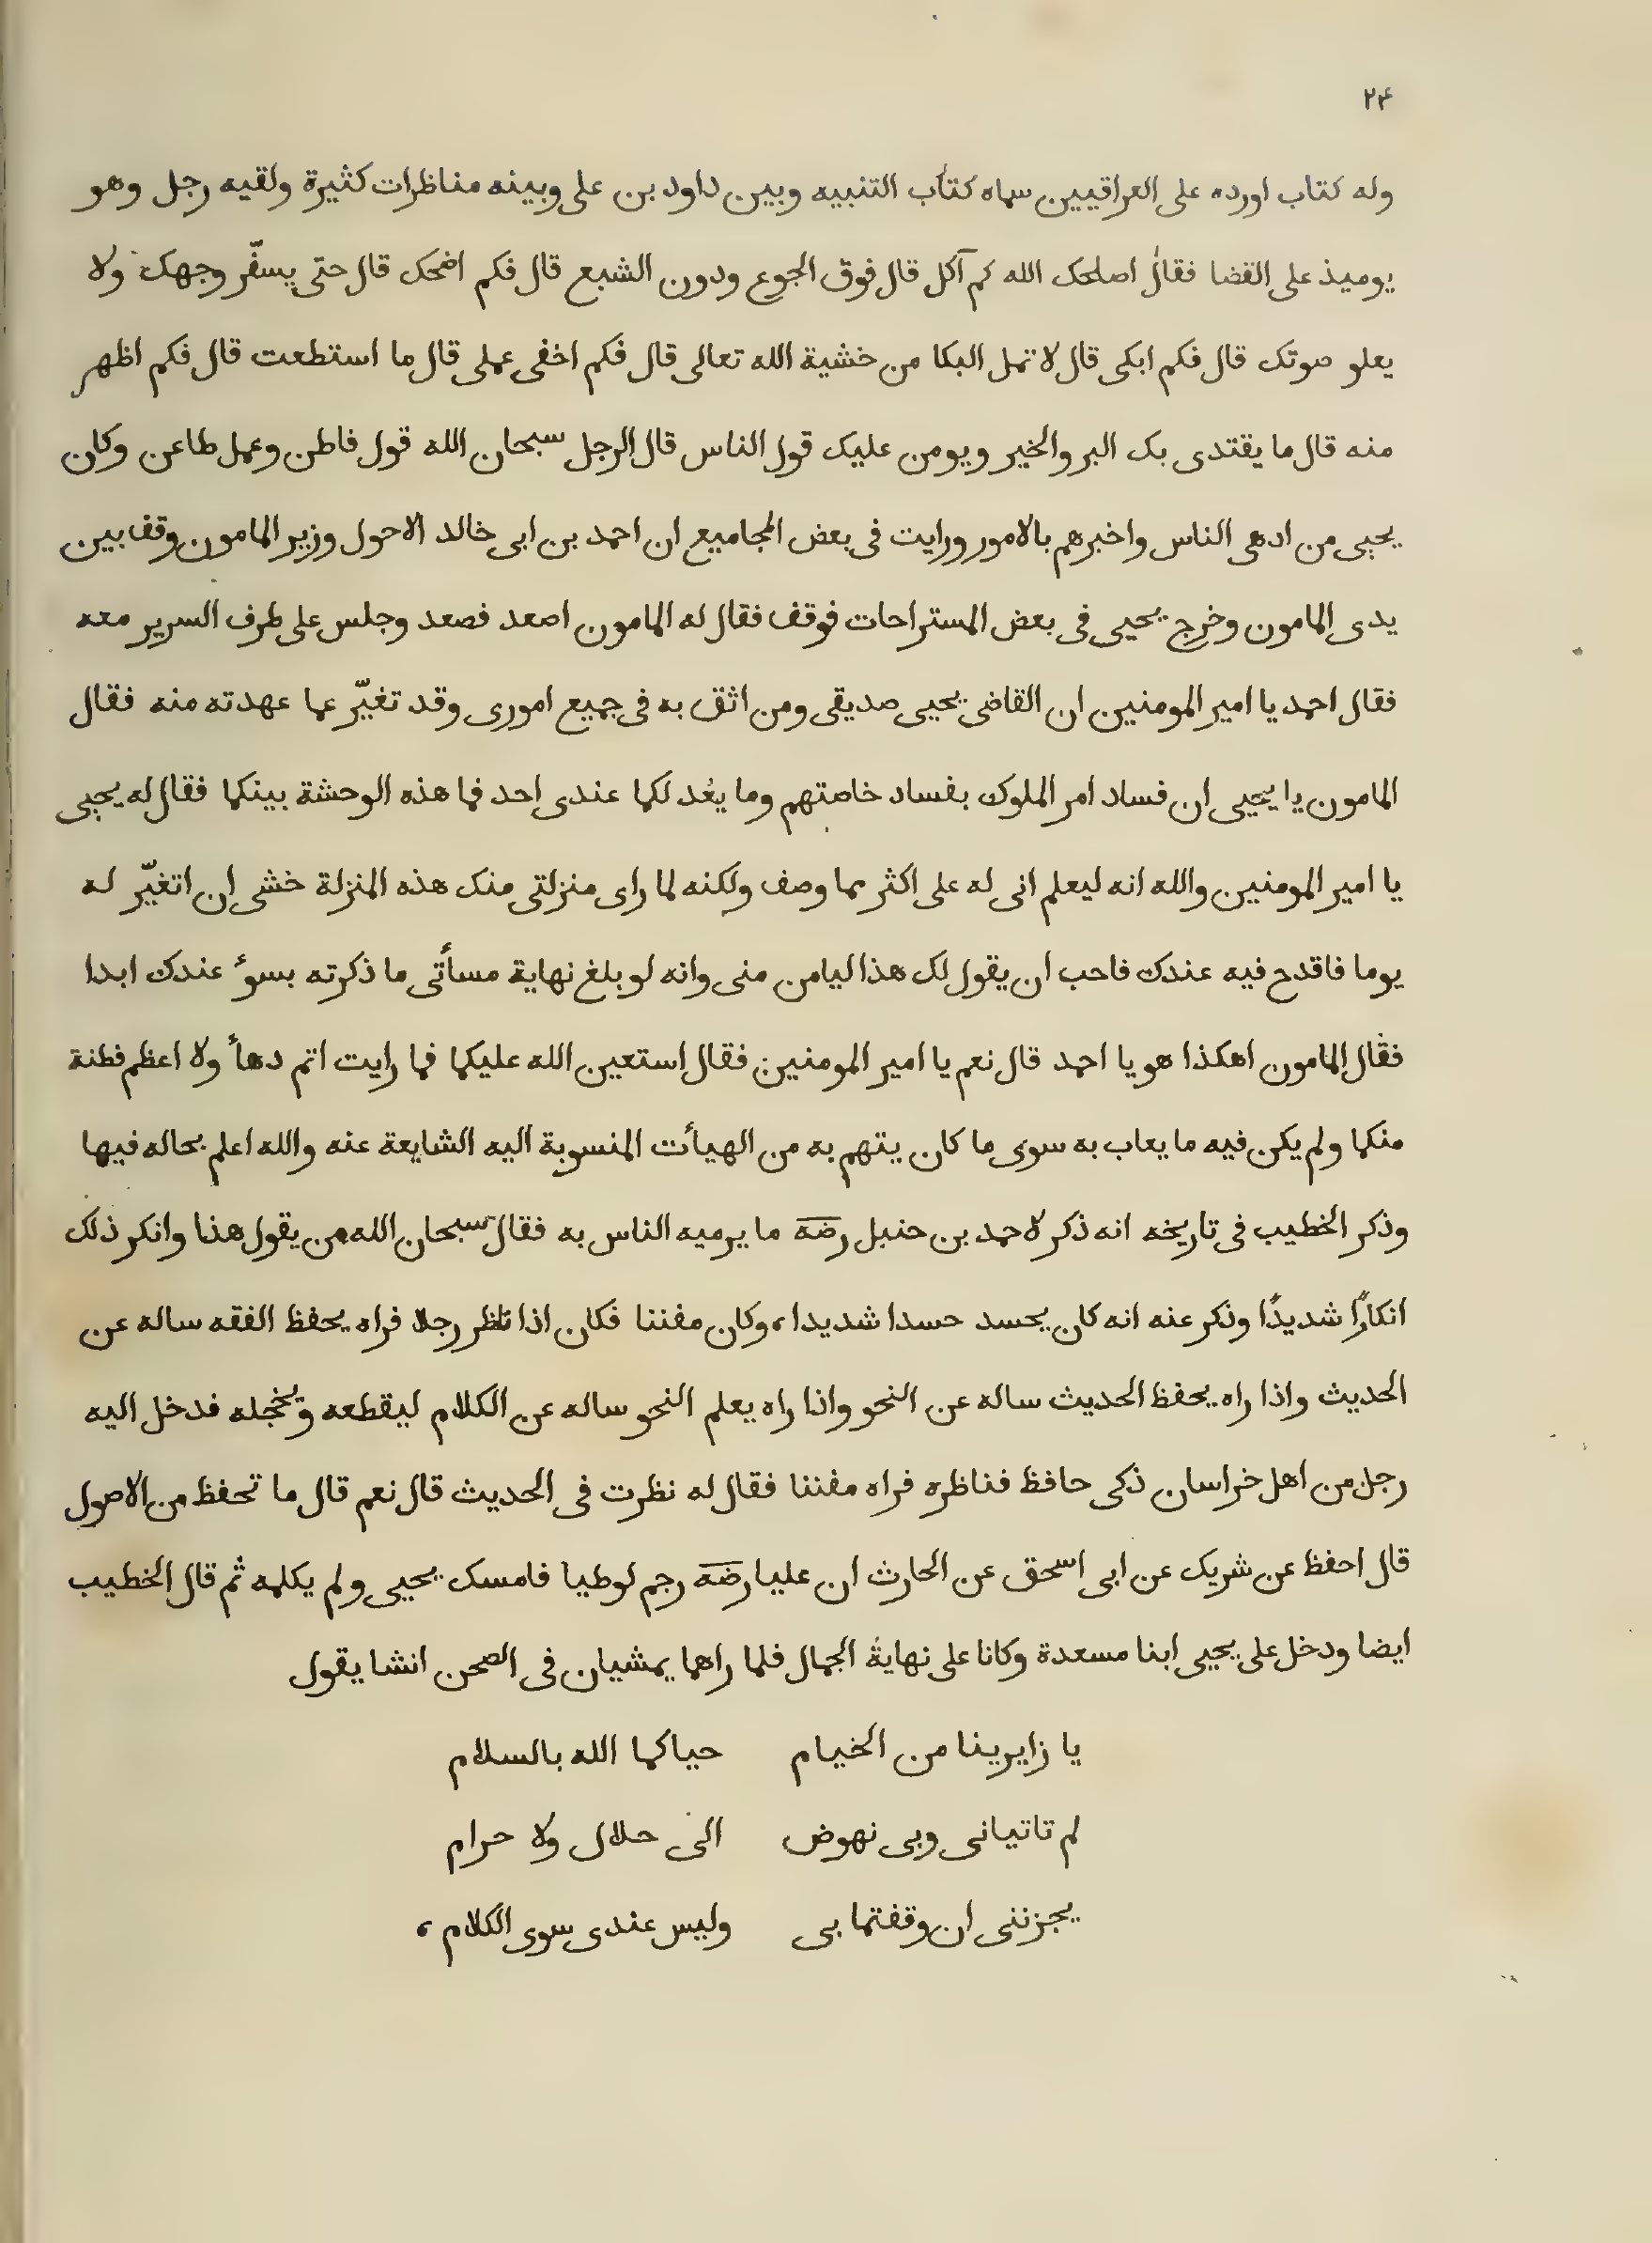 ٢٤
وله كتاب اورده على العراقيين سماه كتاب التنبيه وبين داود بن على وبينه مناظرات كثيرة ولقيه رجل وهو
يوميذ على القضا فقال اصلحك الله كم آكل قال فوق الجوع ودون الشبع قال فكم اضحك قال حتى يسفّر وجهك ولا
يعلو صوتك قال فكم ابكى قال لا تمل البكا من خشية الله تعالى قال فكم اخفى عملى قال ما استطعت قال فكم اظهر
منه قال ما يقتدى بك البر والخير ويومن عليك قول الناس قال الرجل سبحان الله قول فاطن وعمل طاعن وكان
يحيى من ادهى الناس واخبرهم بالامور ورايت فى بعض المجاميع ان احمد بن ابى خالد الاحول وزير المامون وقف بين
يدى المامون وخرج يحيى فى بعض المستراحات فوقف فقال له المامون اصعد فصعد وجلس على طرف السرير معه
فقال احمد يا امير المومنين ان القاضى يحيى صديقى ومن اثق به فى جميع امورى وقد تغيّر عما عهدته منه فقال
المامون يا يحيى ان فساد امر الملوك بفساد خاصتهم وما يعُد لكما عندى احد فما هذه الوحشة بينكما فقال له يحيى
يا امير المومنين والله انه ليعلم انى له على اكثر مما وصف ولكنه لما راى منزلتى منك هذه المنزلة خشى ان اتغيّر له
يوما فاقدح فيه عندك فاحب ان يقول لك هذا ليامن منى وانه لو بلغ نهاية مسأتى ما ذكرته بسوٴ عندك ابدا
فقال المامون اهكذا هو يا احمد قال نعم يا امير المومنين فقال استعين الله عليكما فما رايت اتم دهأ ولا اعظم فطنة
منكما ولم يكن فيه ما يعاب به سوى ما كان يتهم به من الهيأت المنسوبة اليه الشايعة عنه والله اعلم بحاله فيها
وذكر الخطيب فى تاريخه انه ذكر لاحمد بن حنبل رضه ما يرميه الناس به فقال سبحان الله من يقول هذا وانكر ذلك
انكارًا شديدًا وذكر عنه انه كان يحسد حسدا شديدا، وكان مفننا فكان اذا ناظر رجلا فراه يحفظ الفقه ساله عن
الحديث واذا راه يحفظ الحديث ساله عن النحو واذا راه يعلم النحو ساله عن الكلام ليقطعه ويخجله فدخل اليه
رجل من اهل خراسان ذكى حافظ فناظره فراه مفننا فقال له نظرت فى الحديث قال نعم قال ما تحفظ من الاصول
قال احفظ عن شريك عن ابى اسحق عن الحارث ان عليا رضه رجم لوطيا فامسك يحيى ولم يكلمه ثم قال الخطيب
ايضا ودخل على يحيى ابنا مسعدة وكانا على نهاية الجمال فلما راهما يمشيان فى الصحن انشا يقول
يا زايرينا من الخيام حياكما الله بالسلام
لم تاتيانى وبى نهوض الى حلال ولا حرام
يحزننى ان وقفتما بى وليس عندى سوى الكلام ،